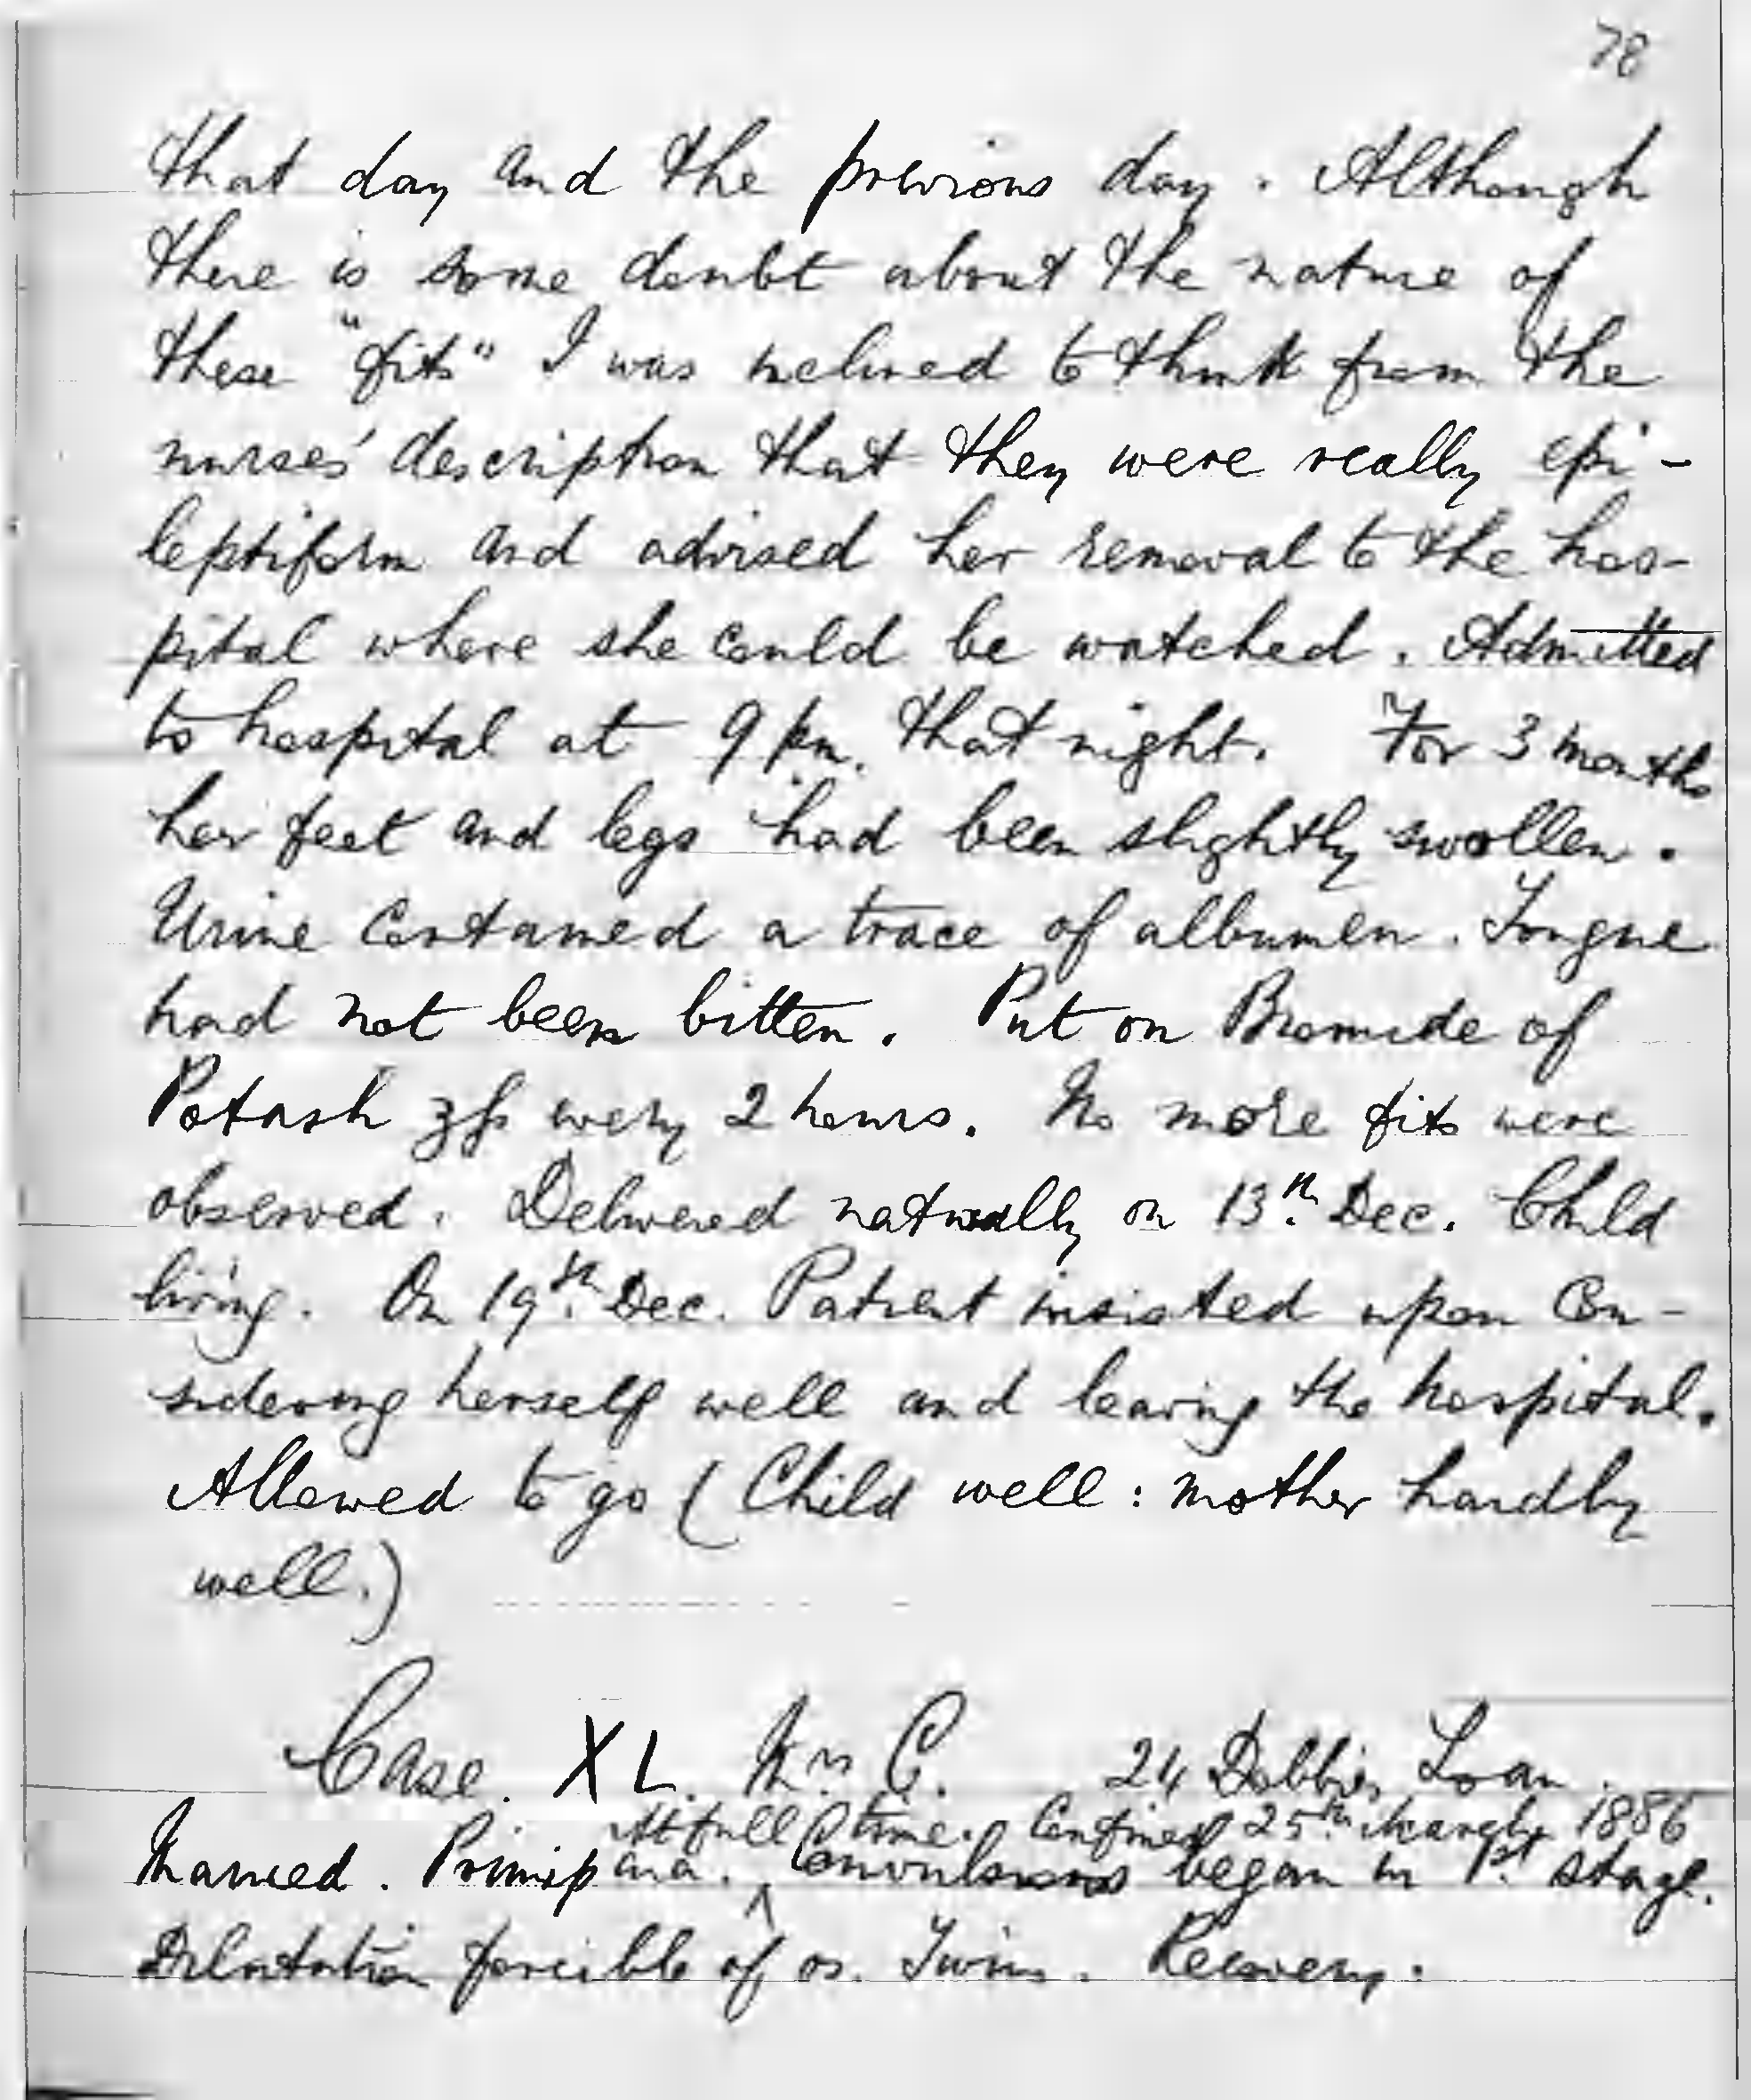 78
that day and the previous day. Although
there is some doubt about the nature of
these "fits" I was inclined to think from the
nurses' description that they were really epi-
leptiform and advised her removal to the hos-
pital where she could be watched. Admitted
to hospital at 9 pm. that night. For 3 months
her feet and legs had been slightly swollen.
Urine contained a trace of albumen. Tongue
had not been bitten. Put on Bromide of
Potash ʒſs every 2 hours. No more fits were
observed. Delivered naturally on 13th Dec. Child
living. On 19th Dec. Patient insisted upon con-
sidering herself well and leaving the hospital.
Allowed to go (Child well: mother hardly
well.)
Case. XL. Mrs C. 24 Dobbies Loan.
At full time. Confined 25th March 1886
Married. Primipara. ^ Convulsions began in 1st stage.
Dilatation forcible of os. Twins. Recovery.